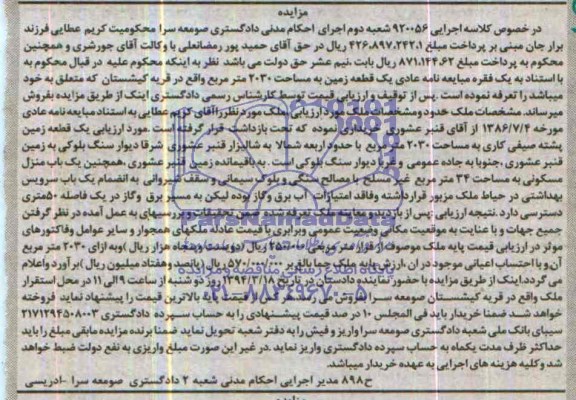 مزایده
در خصوص کلاسه اجرایی ۹۲۰۰۵۶ شعبه دوم اجرای احکام مدنی دادگستری صومعه سرا محکومیت کریم عطایی فرزند
براز جان مبنی بر پرداخت مبلغ ۴۲۶،۸۹۷،۲۴۲،۱ ریال در حق آقای حمید پور رمضانعلی با وکالت آقای جورشری و همچنین
محکوم به پرداخت مبلغ ۸۷۱،۱۴۴،۶۲ ریال بابت نیم عشر حق دولت می باشد نظر به اینکه محکوم علیه در قبال محکوم به
با استناد به یک فقره مبایعه نامه عادی یک قطعه زمین به مساحت ۲۰۳۰ متر مربع واقع در قریه گیشستان که متعلق به خود
میباشد را تعرفه نموده است پس از توقیف و ارزیابی قیمت توسط کارشناس رسمی دادگستری اینک از طریق مزایده بفروش
میرساند. مشخصات ملک حدود ومشخصات مورد ارزیابی ملک مورد نظر را آقای کریم عطایی به استناد مبایعه نامه عادی
مورخه ۱۳۸۶/۷/۴ از آقای قنبر عشوری خریداری نموده که تحت بازداشت قرار گرفته است. مورد ارزیابی یک قطعه زمین
پشته صیفی کاری به مساحت ۲۰۳۰ متر مربع با حدود اربعه شمالا به شالیزار قنبر عشوری شرقا دیوار سنگ بلوکی به زمین
قنبر عشوری ،جنوبا به جاده عمومی و غربا دیوار سنگ بلوکی است به باقیمانده زمین قنبر عشوری ،همچنین یک باب منزل
مسکونی به مساحت ۳۴ متر مربع غیر مسلح با مصالح سنگی و بلوک سیمانی و سقف شیروانی به انضمام یک باب سرویس
بهداشتی در حیاط ملک مزبور قرار داشته وفاقد امتیازات آب برق وگاز بوده لیکن به مسیر برق وگاز در یک فاصله ۵۰متری
دسترسی دارد. نتیجه ارزیابی :پس از بازدید و معاینه ملک تعرفه شده ضمن تحقیقات و بررسیهای به عمل آمده در نظر گرفتن
جمیع جهات و با عنایت به موقعیت مکانی وضعیت عمومی وبرابری با قیمت عادله ملکهای همجوار و سایر عوامل وفاکتورهای
موثر در ارزیابی قیمت پایه ملک موصوف از قرار متر مربعی ۲۵۰،۰۰۰ ریال (دویست و پنجاه هزار ریال )وبه ازای ۲۰۳۰ متر مربع
آن،و با احتساب اعیانی موجود در آن ،ارزش پایه ملک جمعا بالغ بر ۵۷۰/۰۰۰/۰۰۰ ریال (پانصد وهفتاد میلیون ریال )بر آورد واعلام
می گردد.اینک از طریق مزایده با حضور نماینده دادستان در تاریخ ۱۳۹۴/۳/۱۸ روز دو شنبه از ساعت ۹ الی ۱۱ در محل استقرار
ملک واقع در قریه گیشستان صومعه سرا بفروش می رسد به بالاترین قیمت را پیشنهاد نماید فروخته
خواهد شد ضمنا خریدار باید فی المجلس ۱۰ در صد قیمت پیشنهادی را به حساب سپرده دادگستری ۲۱۷۱۲۹۴۵۰۸۰۰۳
سیبای بانک ملی شعبه دادگستری صومعه سرا واریز و فیش را به دفتر شعبه تحویل نماید ضمنا برنده مزایده مابقی مبلغ را باید
حداکثر ظرف مدت یکماه به حساب سپرده دادگستری واریز نماید .در غیر این صورت مبلغ واریزی به نفع دولت ضبط خواهد
شد وکلیه هزینه های اجرایی به عهده خریدار میباشد.
ح۸۹۸ مدیر اجرایی احکام مدنی شعبه ۲ دادگستری صومعه سرا -ادریسی
ParsNamadData
پایگاه اطلاع رسانی مناقصه و مزایده
۰۲۱-۸۸۳۴۹۶۷۰-۵